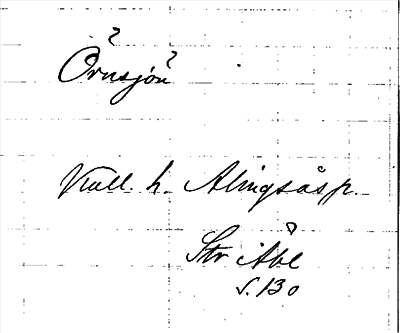 Örnsjön
Kull. h. Alingsås p.
Str Åbl
s. 130